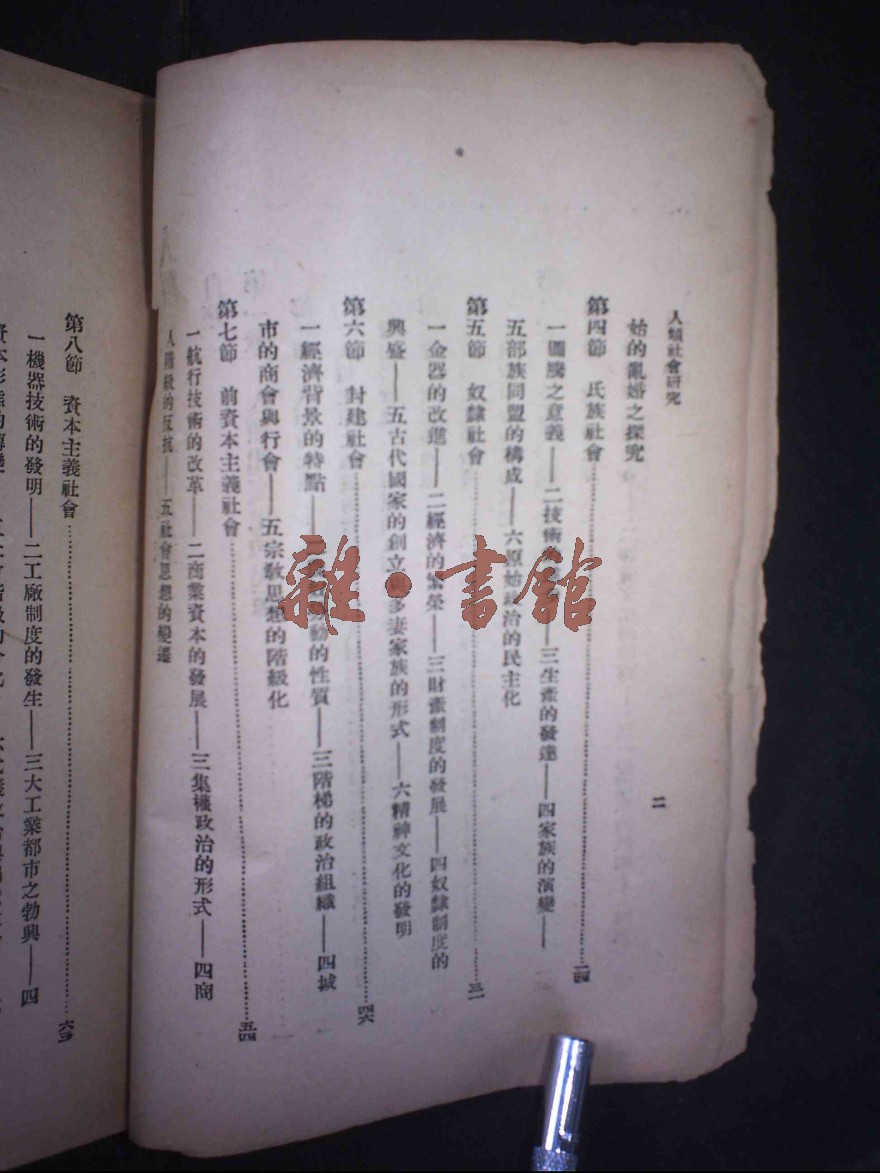 人類社會研究
二
始的亂婚之探究
第四節 氏族社會……一四
一圖騰之意義——二技術——三生產的發達——四家族的演變——
五部族同盟的構成——六原始政治的民主化
第五節 奴隸社會……三一
一金器的改進——二經濟的繁榮——三財產制度的發展——四奴隸制度的
興盛——五古代國家的創立與多妻家族的形式——六精神文化的發明
第六節 封建社會……四六
一經濟背景的特點——動的性質——三階梯的政治組織——四城
市的商會與行會——五宗教思想的階級化
第七節 前資本主義社會……五四
一航行技術的改革——二商業資本的發展——三集權政治的形式——四商
人階級的反抗——五社會思想的變遷
第八節 資本主義社會……六三
一機器技術的發明——二工廠制度的發生——三大工業都市之勃興——四
雜·書館